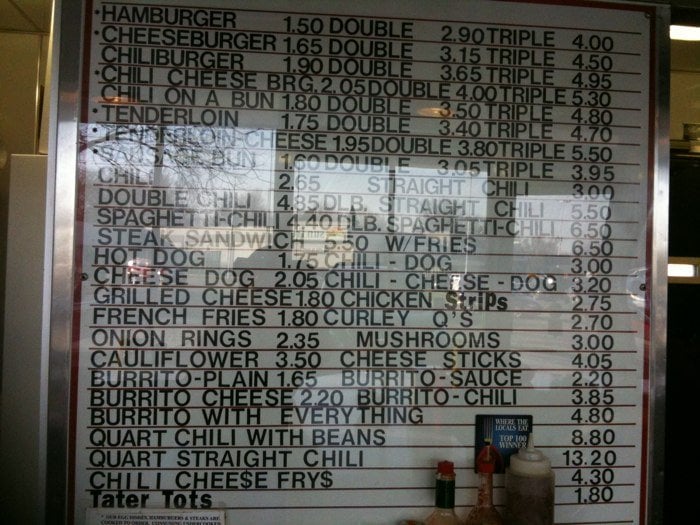 ·HAMBURGER 1.50 DOUBLE 2.90 TRIPLE 4.00
·CHEESEBURGER 1.65 DOUBLE 3.15 TRIPLE 4.50
CHILIBURGER 1.90 DOUBLE 3.65 TRIPLE 4.95
·CHILI CHEESE BRG. 2.05 DOUBLE 4.00 TRIPLE 5.30
CHILI ON A BUN 1.80 DOUBLE 3.50 TRIPLE 4.80
·TENDERLOIN 1.75 DOUBLE 3.40 TRIPLE 4.70
·TENDERLOIN-CHEESE 1.95 DOUBLE 3.80 TRIPLE 5.50
·SAUSAGE BUN 1.60 DOUBLE 3.05 TRIPLE 3.95
CHILI 2.65 STRAIGHT CHILI 3.00
DOUBLE CHILI 4.85 DLB. STRAIGHT CHILI 5.50
SPAGHETTI-CHILI 4.40 DLB. SPAGHETTI-CHILI 6.50
STEAK SANDWICH 5.50 W/FRIES 6.50
HOT DOG 1.75 CHILI - DOG 3.00
CHEESE DOG 2.05 CHILI - CHEESE - DOG 3.20
GRILLED CHEESE 1.80 CHICKEN Strips 2.75
FRENCH FRIES 1.80 CURLEY Q'S 2.70
ONION RINGS 2.35 MUSHROOMS 3.00
CAULIFLOWER 3.50 CHEESE STICKS 4.05
BURRITO-PLAIN 1.65 BURRITO-SAUCE 2.20
BURRITO CHEESE 2.20 BURRITO-CHILI 3.85
BURRITO WITH EVERYTHING 4.80
QUART CHIL WITH BEANS 8.80
QUART STRAIGHT CHILI 13.20
CHILI CHEE$E FRY$ 4.30
Tater Tots 1.80
WHERE THE
LOCALS EAT
TOP 100
WINNER
* OUR EGG DISHES, HAMBURGERS & STEAKS ARE
COOKED TO ORDER.